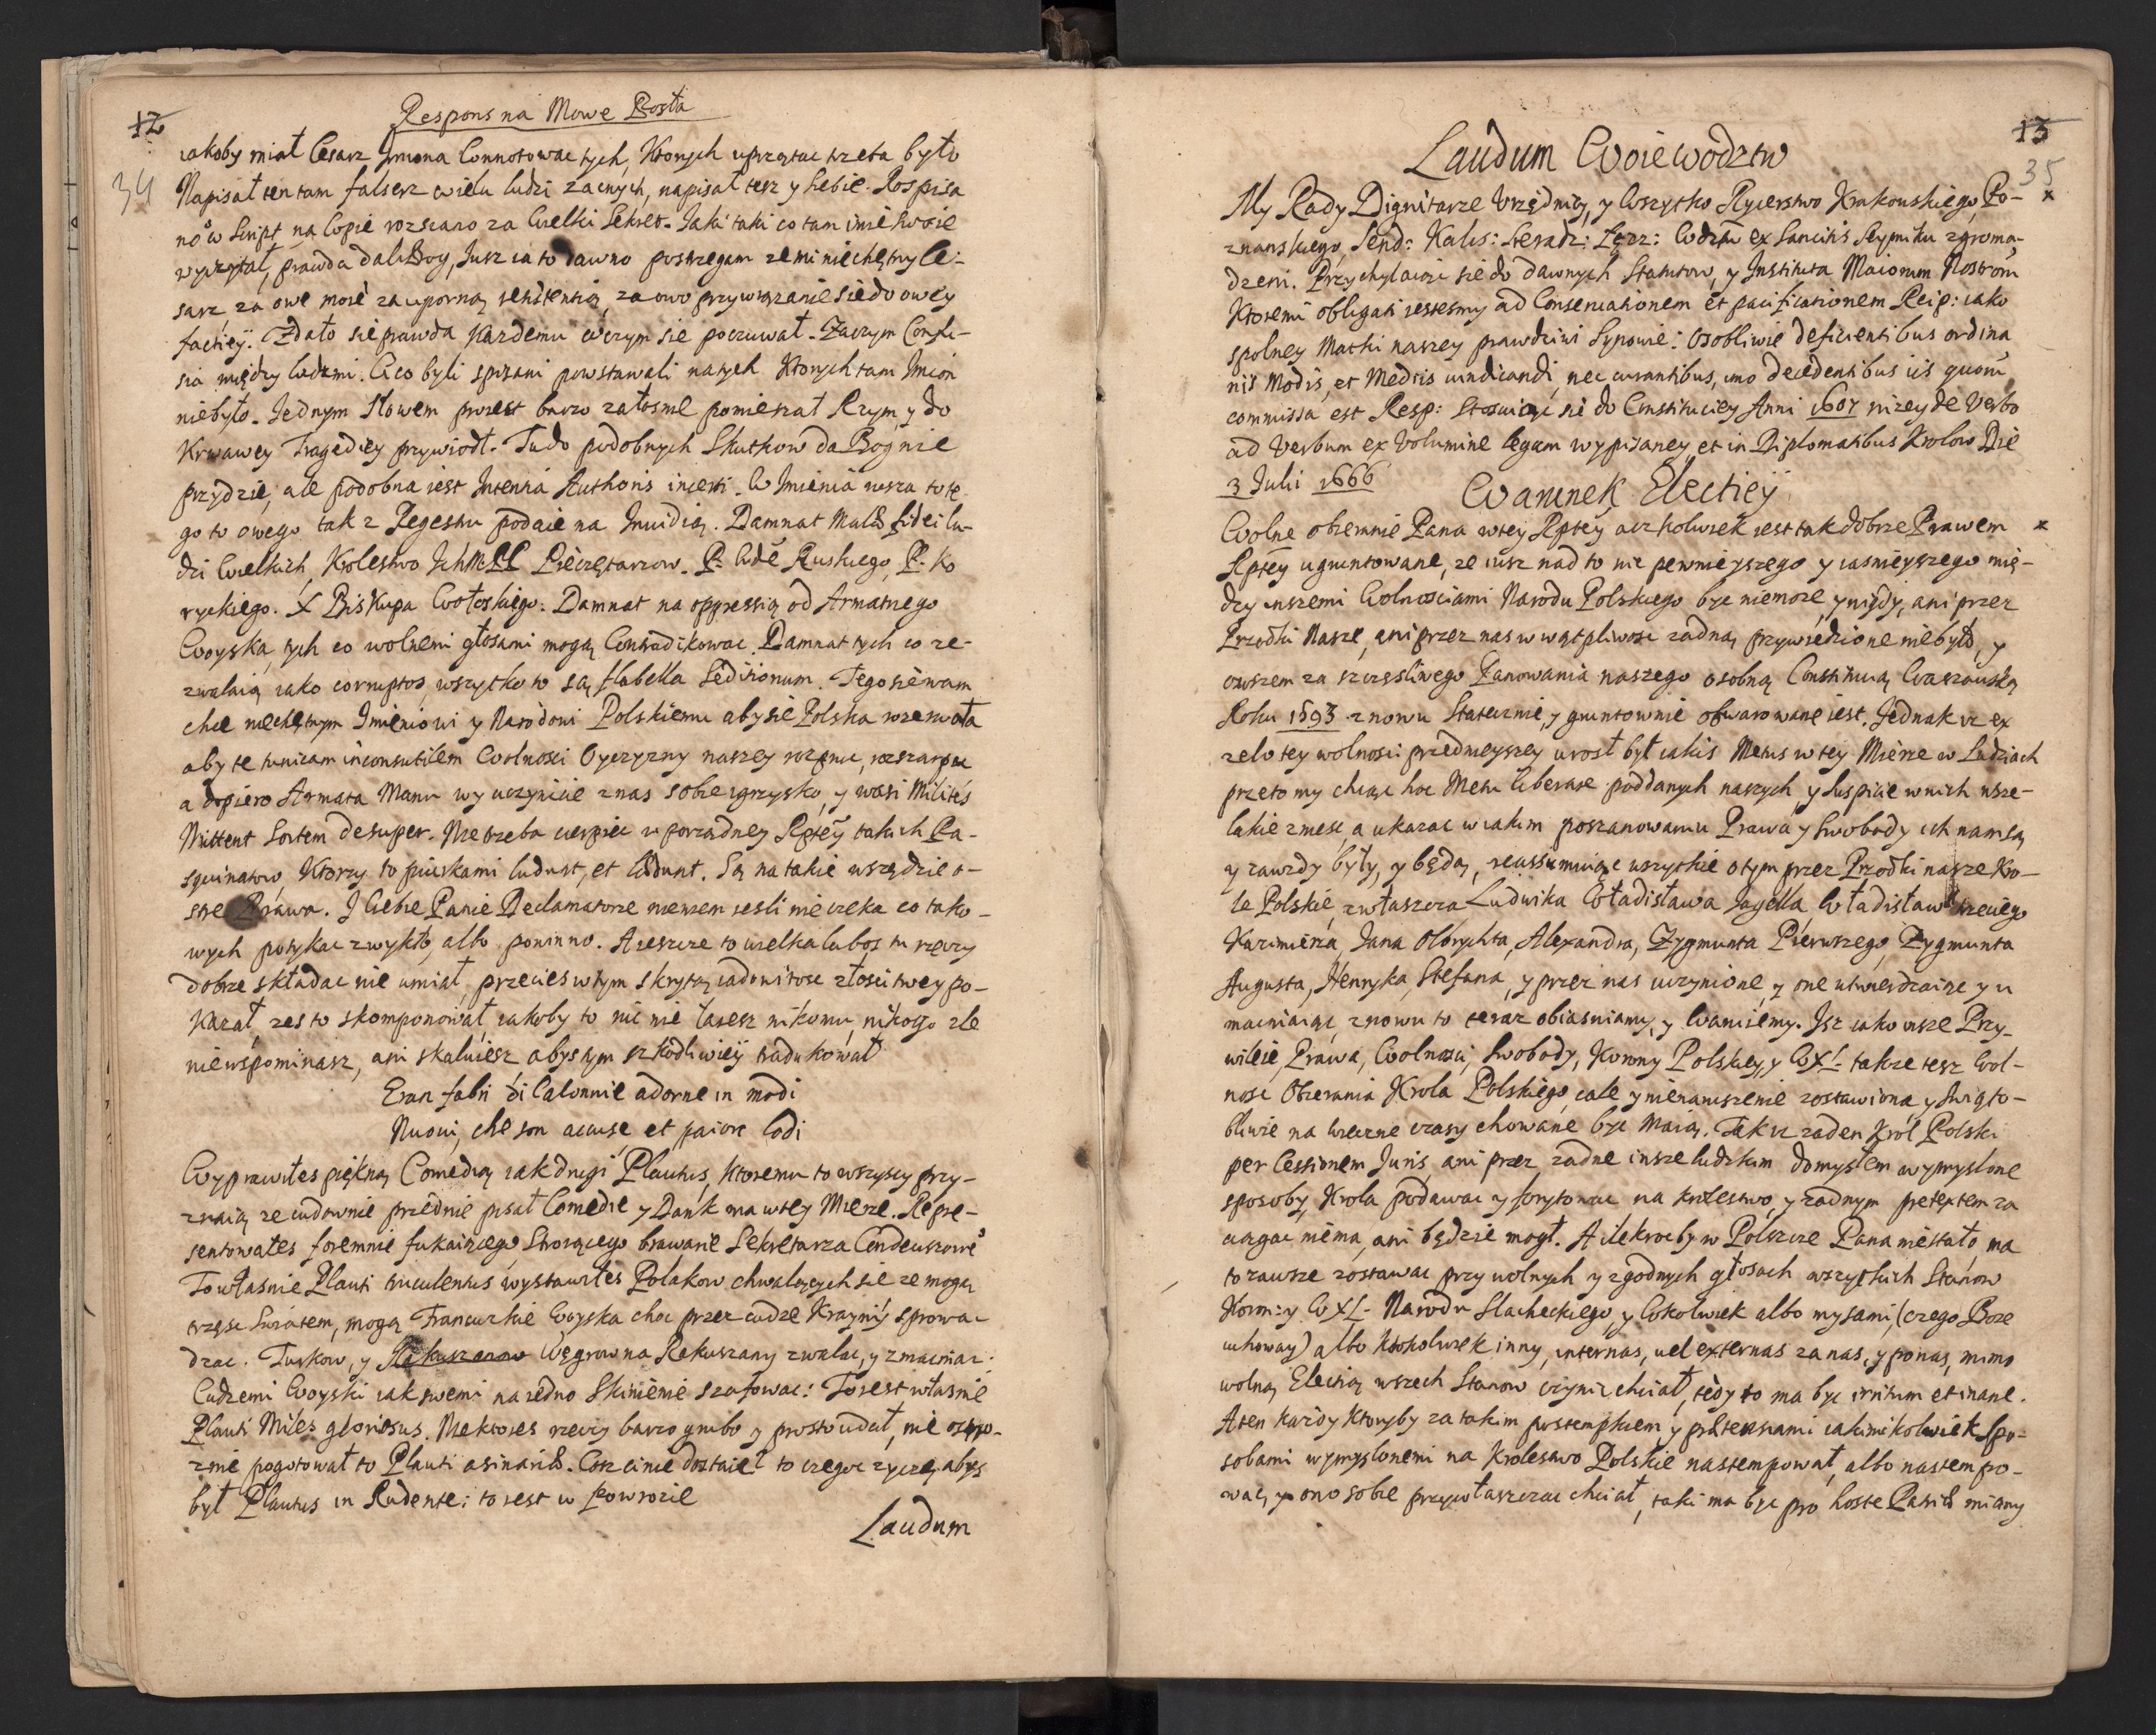 12
34
Respons na Mowe Posła
iakoby miał Cesarz Imiona Connotowac tych, Ktorych uprzątac trzeba było
Napisał ten tam falserz wielu ludzi zacnych, napisał tesz y siebie. Rospisa
no w Script na Copie rozsiano za wielki Sekret. Jaki taki co tam imie swoie
wyczytał, prawda daliBog, Jusz ia to dawno postrzegam ze mi niechętny Ce-
sarz, za owe mosc za uporną sententią, za owo przywiązanie sie do owey
factiey. Zdało sie prawda każdemu w czym sie poczuwał. Zaczym Confu-
sia między ludzmi. Ci co byli spisani powstawali na tych Ktorych tam Imion
niebyło. Jednym Słowem prozest barzo załosnie pomieszał Rzym, y do
Krwawey Tragediey przywiodł. Tu do podobnych Skutkow da Bog nie
przydzie, ale podobna iest Intentia Authoris incerti. W Imienia rusza to te
go to owego tak z Regestru podaie na Inuidią. Damnat Malæ fidei lu-
dzi wielkich, Krolestwo IchMPP Pieczętarzow. P. Wdę Ruskiego, P. Ko
ryckiego. X Biskupa Wołoskiego: Damnat na oppressią od Armatnego
Woyska, tych co wolnemi głosami mogą Contradikowac. Damnat tych co ze-
zwalaią iako corruptos, wszytko to są flabella Seditionum. Tego sie wam
chce niechętnym Imieniowi y Narodowi Polskiemu aby sie Polska rozerwała
aby te tunicam inconsutilem Wolnosci Oyczyzny naszey rozpruc, rozszarpac
a dopiero Armata Manu wy uczynicie z nas sobie igrzysko, y wasi Milites
Mittent Sortem desuper. Nie trzeba cierpiec w porządney Rptey takich Pa-
squinatow, Ktorzy to pioskami ludunt, et lædunt. Są na takie wszędzie o-
stre Prawa. I Ciebie Panie Declamatorze niewiem iesli nie czeka co tako-
wych potykac zwykło, albo powinno. A ieszcze to wielka lubos tu rzeczy
dobrze składac nie umiał, przecies w tym skrytą iadowitosc złosci twey po-
Kazał, zes to skomponował, iakoby to nic nie łaiesz nikomu, nikogo zle
niewspominasz, ani skaluiesz, abys tym szkodliwiey traduKował
Eran fabri di Calonnie adorne in modi
Nuoui, che son accuse et paiore lodi
Wyprawiłes piękną Comedią iak drugi Plautus, Ktoremu to wszyscy przy-
znaią ze cudownie przednie pisał Comedie y Dank ma w tey Mierze. Repre-
sentowałes foremnie fukaiącego, Srozącego brawanie Sekretarza Condeuszowe
To własnie Plauti truculentus, wystawiłes Polakow chwalących sie ze mogą
trząsc Swiatem, mogą Francuzkie Woyska choc przez cudze Krainy sprowa-
dzac. Turkow, y Węgrow na Rakuszany zwalac, y zmacniac:
Cudzemi Woyski iak swemi na iedno Skinienie szafowac: To iest własnie
Plauti Miles gloriosus. Niektores rzeczy barzo grubo y prosto udał, nie ostro-
znie pogotował to Plauti asinariæ. Cosz cinie dostaie to czegoc zyczę, abys
był Plautus in Rudente: to iest w Powrozie
Laudum
13
35
Laudum Woiewodztw
My Rady Dignitarze Urzędnicy, y Wszytko Rycerstwo Krakowskiego, Po- x
znanskiego, Send: Kalis: Sieradz: Łęcz: Wodztw ex Sancitis Seymiku zgroma-
dzeni. Przychylaiąc sie do dawnych Statutow, y Instituta Maiorum Nostrom
Ktoremi obligati iestesmy ad Conseruationem et pacificationem Reip: iako
spolney Matki naszey prawdziwi Synowie: Osobliwie deficientibus ordina
riis Modis, et Mediis vindicandi, nec curantibus, imo decedentibus iis quom
commissa est Resp: Stosuiąc sie do Constituciey Anni 1607 nizey de Verbo
ad Verbum ex Volumine legum wypisaney, et in Diplomatibus Krolow Die
3 Julii 1666
Warunek Electiey
Wolne obieranie Pana w tey Rptey acz kolwiek iest tak dobrze Prawem x
Rptey ugruntowane, ze iusz nad to nic pewnieyszego y iasnieyszego mię-
dzy inszemi Wolnosciami Narodu Polskiego byc niemoze, y nigdy, ani przez
Przodki Nasze, ani przez nas w wątpliwosc zadną przywiedzione niebyło, y
owszem za szczęsliwego Panowania naszego osobną Constitucią Warszawską
Roku 1593 znowu Statecznie, y gruntownie obwarowane iest. Jednak iz ex
zelo tey wolnosci przednieyszey urosł był iakis Metus w tey Mierze w Ludziach
przeto my chcąc hoc Metu liberare poddanych naszych y Suspicie w nich wsze-
lakie zniesc, a ukazac w iakim poszanowaniu Prawa y Swobody ich nam są
y zawzdy były, y będą, reassumuiąc wszytkie o tym przez Przodki nasze Kro-
le Polskie, zwłaszcza Ludwika Władisława Jagella, Władisława trzeciego
Kazimierza, Jana Olbrychta, Alexandra, Zygmunta Pierwszego, Zygmunta
Augusta, Henryka, Stefana, y przez nas uczynione, y one utwierdzaiąc y u
macniaiąc, znowu to teraz obiasniamy, y Waruiemy. Isz iako insze Przy-
wileie, Prawa, Wolnosci, Swobody, Korony Polskiey, y WXL- takze tesz Wol-
nosc Obierania Krola Polskiego, cale y nienaruszenie zostawiona, y Swięto-
bliwie na wieczne czasy chowane byc Maią. Tak iz zaden Krol Polski
per Cessionem Juris, ani przez zadne insze ludzkim domysłem wymyslone
sposoby, Krola podawac y forytowac na krolestwo, y zadnym pretextem za
ciągac niema, ani będzie mogł. A ilekrocby w Polszcze Pana niestało, ma
to zawsze zostawac przy wolnych y zgodnych głosach wszytkich Stanow
Koron: y WXL- Narodu Slacheckiego, y Cokolwiek albo my sami, (czego Boze
uchoway) albo Ktokolwiek inny, internas, vel externas za nas, y po nas, mimo
wolną Electią wszech Stanow czynic chciał, tedy to ma byc irritum et inane.
A ten kazdy Ktoryby za takim postempkiem y prætensiami iakimikolwiek Spo-
sobami wymyslonemi na Krolestwo Polskie nastempował, albo nastempo-
wac, y ono sobie przywłaszczac chciał, taki ma byc pro hoste Patriæ miany